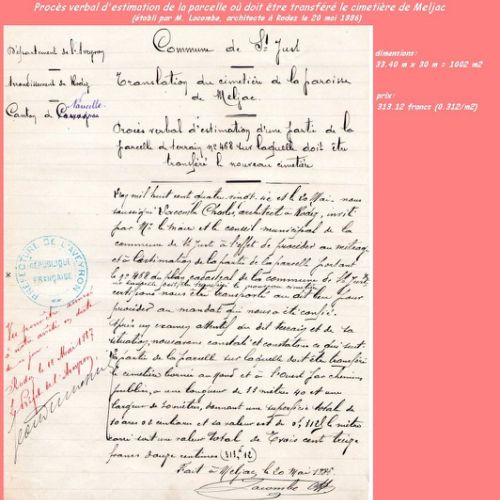 Procès verbal d'estimation de la parcelle où doit être transféré le cimetière de Meljac
(établi par M. Lacombe, architecte à Rodez le 20 mai 1886)
dimentions:
33.40 m x 30 m = 1002 m2
prix:
313.12 francs (0.312/m2)
Département de l'Aveyron
Arrondissement de Rodez
Canton de Naucelle
Commune de St Just
Translation du cimetière de la paroisse
de Meljac.
Procès verbal d'estimation d'une partie de la
parcelle de terrain n° 468 sur laquelle doit être
transféré le nouveau cimetière
mil huit cent quatre vingt et le 20 Mai nous
soussigné Lacombe Charles, architecte à Rodez, invité
par Mr le maire et le conseil municipal de la
commune de St Just à l'effet de procéder au métrage
et à l'estimation de la partie de la parcelle portant
le n° 468 du plan cadastral de la commune de St Just
sur laquelle doit être transféré le nouveau cimetière
nous être transporté au dit lieu pour
procéder au mandat qui nous a été confié.
Après un examen attentif du dit terrain et de sa
situation, nous avons constaté et constatons ce qui suit
la partie de la parcelle sur laquelle doit être transféré
le cimetière bornée au nord et à l'Ouest par chemins
publics, a une longueur de 33 mètres 40 et une
largeur de 30 mètres, donnant une superficie total de
10 ares 02 centiares et sa valeur est de 0f,312 le mètre
carré soit une valeur total de Trois cent treize
francs douze centimes (313f,12)
Fait à Meljac le 20 Mai
Lacombe
PRÉFECTURE DE L'AVEYRON
RÉPUBLIQUE
FRANÇAISE
Vu pour être annexé
à notre en date
de ce jour
Rodez, le 18
Le Préfet de l'Aveyron